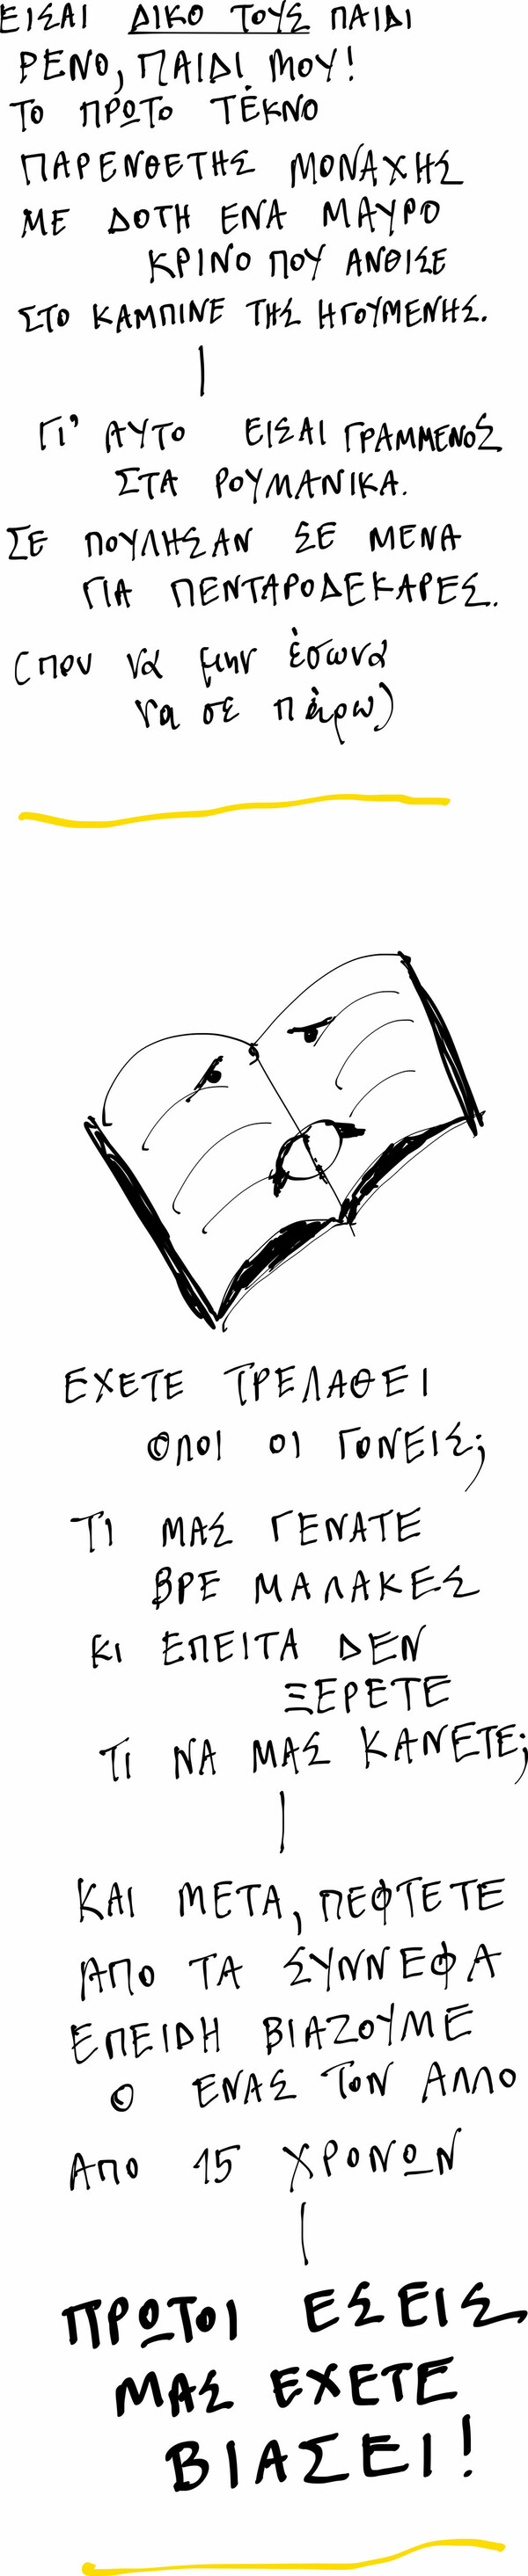 ΕΙΣΑΙ ΔΙΚΟ ΤΟΥΣ ΠΑΙΔΙ
ΡΕΝΟ, ΠΑΙΔΙ ΜΟΥ!
ΤΟ ΠΡΩΤΟ ΤΕΚΝΟ
ΠΑΡΕΝΘΕΤΗΣ ΜΟΝΑΧΗΣ
ΜΕ ΔΟΤΗ ΕΝΑ ΜΑΥΡΟ
ΚΡΙΝΟ ΠΟΥ ΑΝΘΙΣΕ
ΣΤΟ ΚΑΜΠΙΝΕ ΤΗΣ ΗΓΟΥΜΕΝΗΣ.
ΓΙ' ΑΥΤΟ ΕΙΣΑΙ ΓΡΑΜΜΕΝΟΣ
ΣΤΑ ΡΟΥΜΑΝΙΚΑ.
ΣΕ ΠΟΥΛΗΣΑΝ ΣΕ ΜΕΝΑ
ΓΙΑ ΠΕΝΤΑΡΟΔΕΚΑΡΕΣ.
(που νά μην έσωνα
να σε πάρω)
ΕΧΕΤΕ ΤΡΕΛΑΘΕΙ
ΟΛΟΙ ΟΙ ΓΟΝΕΙΣ;
ΤΙ ΜΑΣ ΓΕΝΑΤΕ
ΒΡΕ ΜΑΛΑΚΕΣ
ΚΙ ΕΠΕΙΤΑ ΔΕΝ
ΞΕΡΕΤΕ
ΤΙ ΝΑ ΜΑΣ ΚΑΝΕΤΕ;
ΚΑΙ ΜΕΤΑ, ΠΕΦΤΕΤΕ
ΑΠΟ ΤΑ ΣΥΝΝΕΦΑ
ΕΠΕΙΔΗ ΒΙΑΖΟΥΜΕ
Ο ΕΝΑΣ ΤΟΝ ΑΛΛΟ
ΑΠΟ 15 ΧΡΟΝΩΝ
ΠΡΩΤΟΙ ΕΣΕΙΣ
ΜΑΣ ΕΧΕΤΕ
ΒΙΑΣΕΙ!